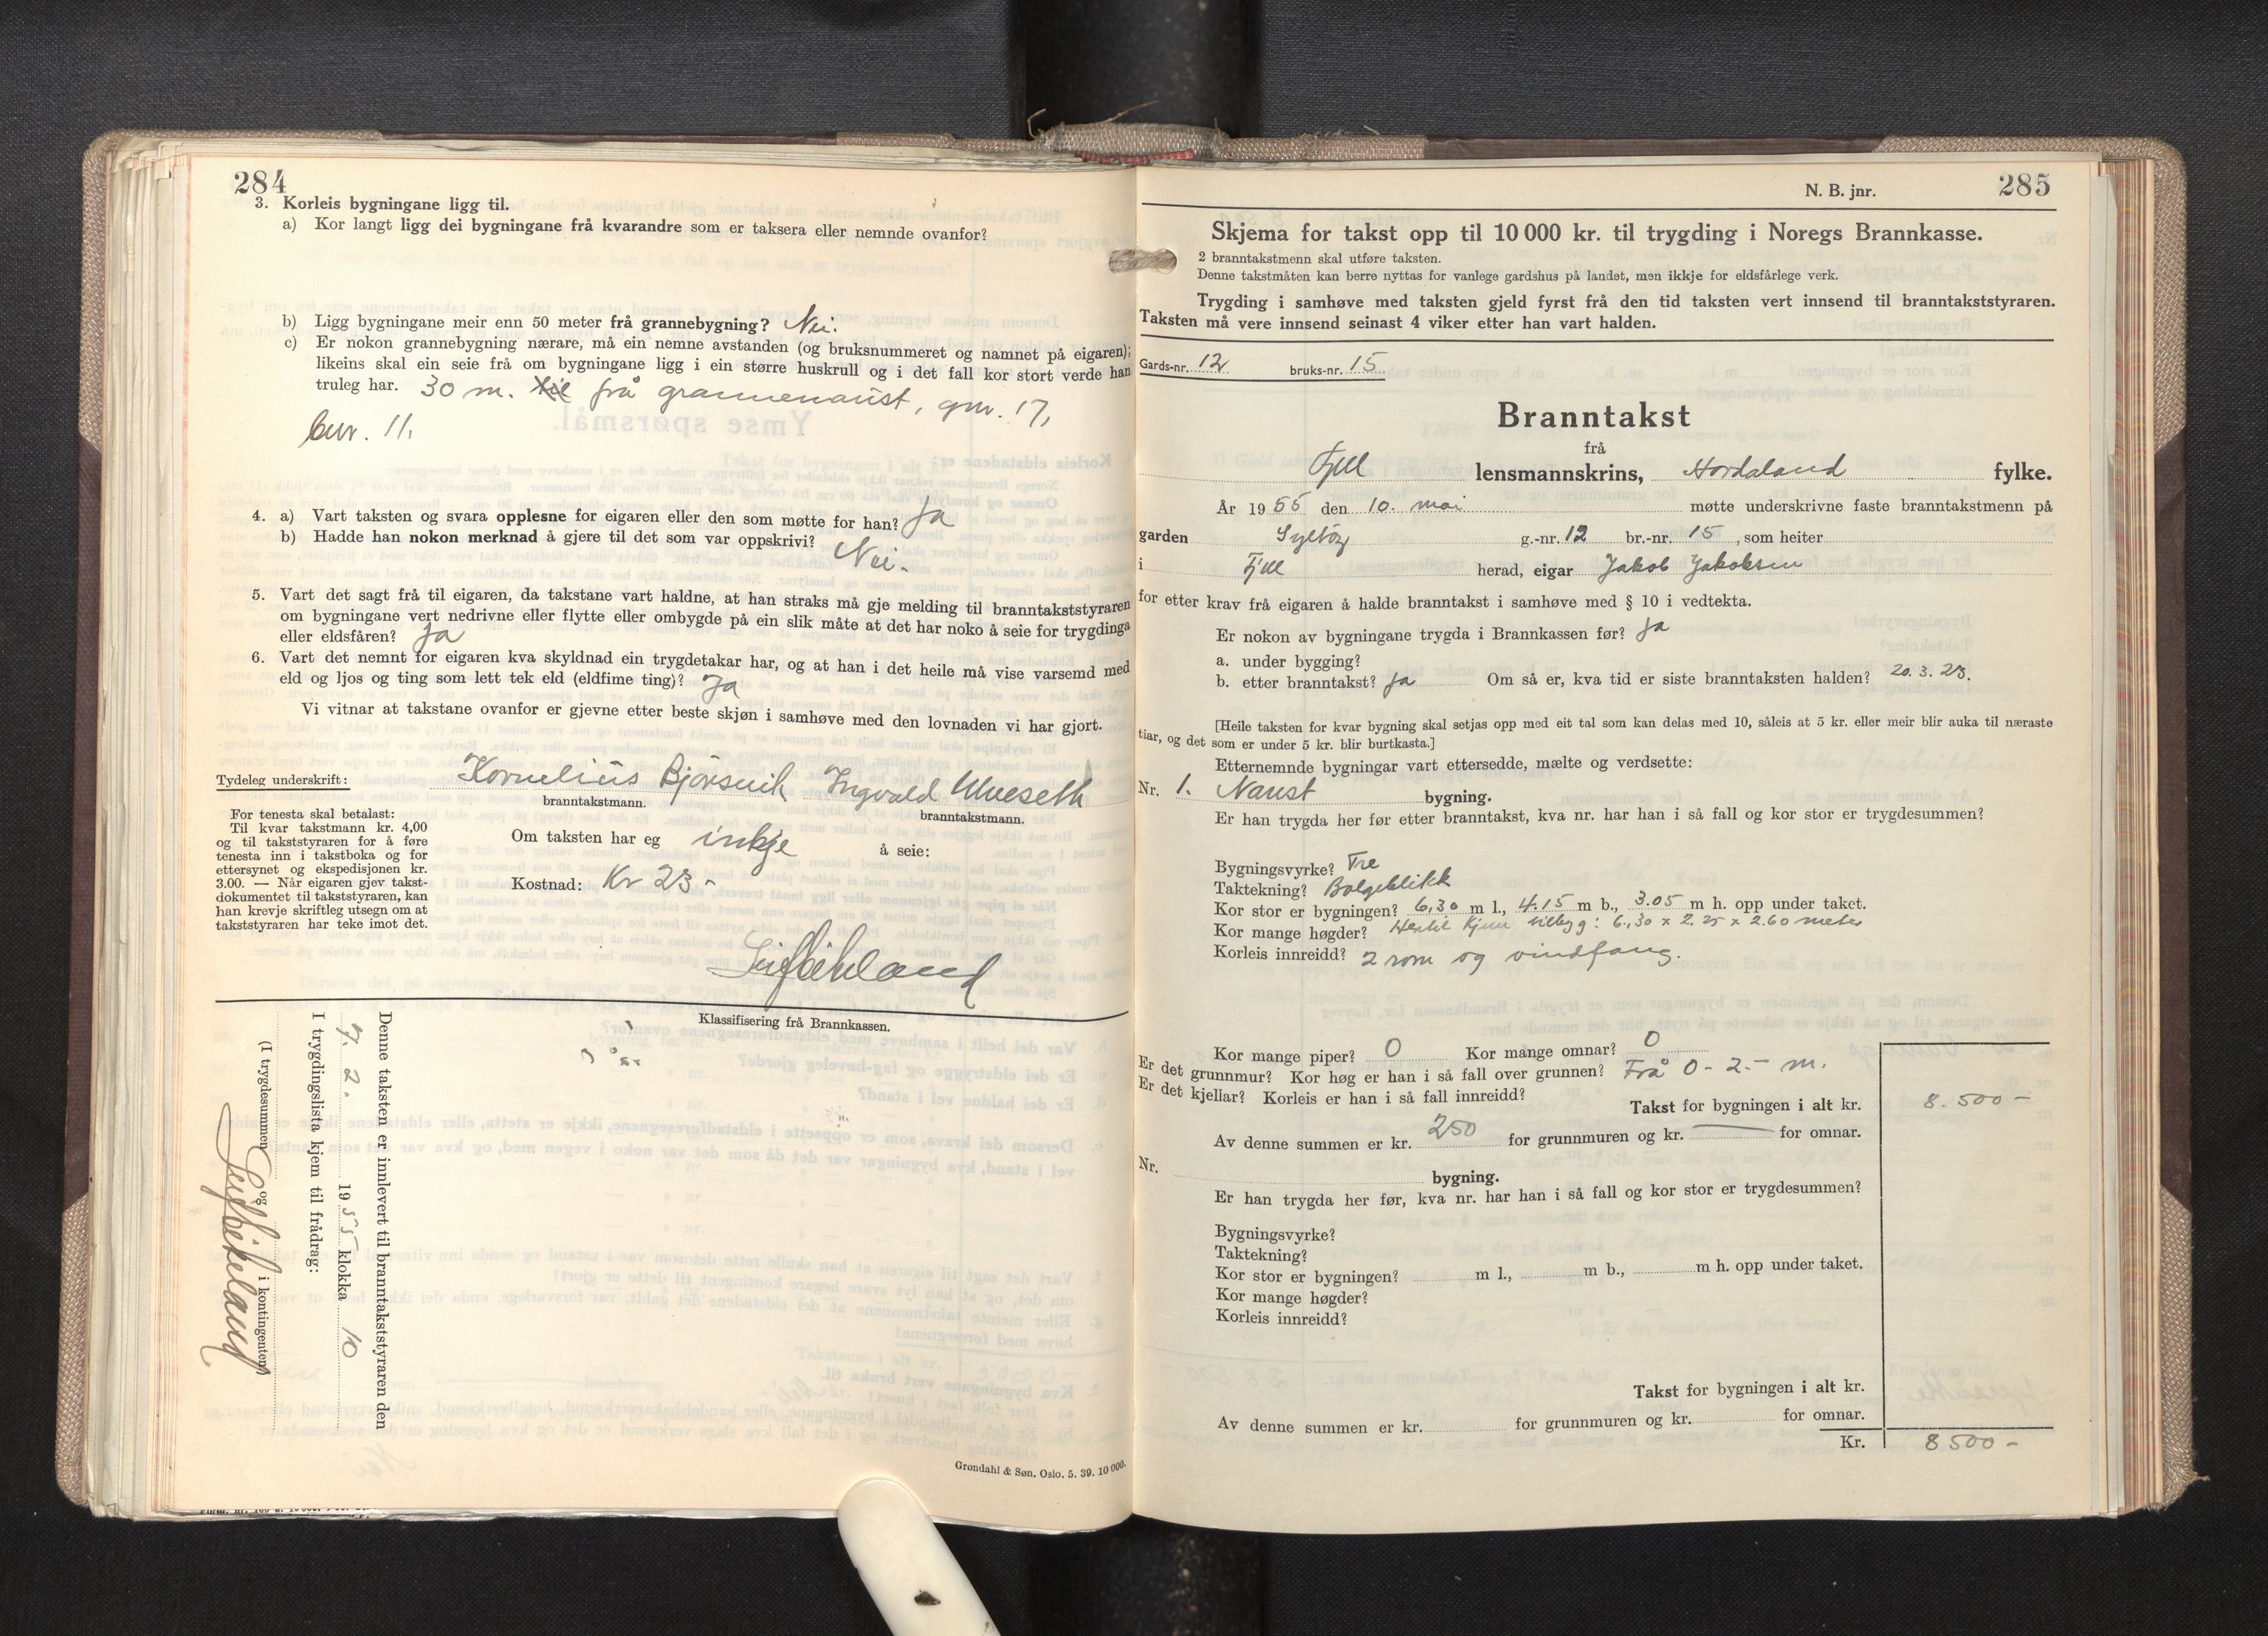 284
3. Korleis bygningane ligg til.
a) Kor langt ligg dei bygningane frå kvarandre som er taksera eller nemnde ovanfor?
b) Ligg bygningane meir enn 50 meter frå grannebygning? Nei.
c) Er nokon grannebygning nærare, må ein nemne avstanden (og bruksnummeret og namnet på eigaren);
likeins skal ein seie frå om bygningane ligg i ein større huskrull og i det fall kor stort verde han
truleg har. 30 m. frå grannenaust, gnr. 17,
bnr. 11.
4. a) Vart taksten og svara opplesne for eigaren eller den som møtte for han? Ja
b) Hadde han nokon merknad å gjere til det som var oppskrivi? Nei.
5. Vart det sagt frå til eigaren, da takstane vart haldne, at han straks må gje melding til branntakststyraren
om bygningane vert nedrivne eller flytte eller ombygde på ein slik måte at det har noko å seie for trygdinga
eller eldsfåren? Ja
6. Vart det nemnt for eigaren kva skyldnad ein trygdetakar har, og at han i det heile må vise varsemd med
eld og ljos og ting som lett tek eld (eldfime ting)? Ja
Vi vitnar at takstane ovanfor er gjevne etter beste skjøn i samhøve med den lovnaden vi har gjort.
Tydeleg underskrift: Kornelius Bjørsvik Ingvald Ulveseth
branntakstmann. branntakstmann.
For tenesta skal betalast:
Til kvar takstmann kr. 4,00
og til takststyraren for å føre
tenesta inn i takstboka og for
ettersynet og ekspedisjonen kr.
3.00. — Når eigaren gjev takst-
dokumentet til takststyraren, kan
han krevje skriftleg utsegn om at
takststyraren har teke imot det.
Om taksten har eg inkje å seie:
Kostnad: Kr 23-
Klassifisering frå Brannkassen.
Denne taksten er innlevert til branntakststyraren den
7. 2. 1955 klokka 10
I trygdingslista kjem til frådrag:
(I trygdesummen og i kontingenten)
Grøndahl & Søn. Oslo. 5. 39. 10 000.
N. B. jnr. 285
Skjema for takst opp til 10 000 kr. til trygding i Noregs Brannkasse.
2 branntakstmenn skal utføre taksten.
Denne takstmåten kan berre nyttas for vanlege gardshus på landet, men ikkje for eldsfårlege verk.
Trygding i samhøve med taksten gjeld fyrst frå den tid taksten vert innsend til branntakststyraren.
Taksten må vere innsend seinast 4 viker etter han vart halden.
Gards-nr. 12 bruks-nr. 15
Branntakst
frå
Fjell lensmannskrins, Hordaland fylke.
År 1955 den 10. mai møtte underskrivne faste branntakstmenn på
garden Syltøy g.-nr. 12 br.-nr. 15, som heiter
i Fjell herad, eigar Jakob Jakobsen
for etter krav frå eigaren å halde branntakst i samhøve med § 10 i vedtekta.
Er nokon av bygningane trygda i Brannkassen før? Ja
a. under bygging?
b. etter branntakst? Ja Om så er, kva tid er siste branntaksten halden? 20. 3. 23.
[Heile taksten for kvar bygning skal setjas opp med eit tal som kan delas med 10, såleis at 5 kr. eller meir blir auka til næraste
tiar, og det som er under 5 kr. blir burtkasta.]
Etternemnde bygningar vart ettersedde, mælte og verdsette:
Nr. 1. Naust bygning.
Er han trygda her før etter branntakst, kva nr. har han i så fall og kor stor er trygdesummen?
Bygningsvyrke? Tre
Taktekning? Bølgeblikk
Kor stor er bygningen? 6,30 m l., 4.15 m b., 3.05 m h. opp under taket.
Kor mange høgder? Hertil kjem tilbyg: 6,30 x 2.25 x 2.60 meter
Korleis innreidd? 2 rom og vindfang.
Kor mange piper? 0 Kor mange omnar? 0
Er det grunnmur? Kor høg er han i så fall over grunnen? Frå 0 - 2.- m.
Er det kjellar? Korleis er han i så fall innreidd?
Takst for bygningen i alt kr. 8.500-
Av denne summen er kr. 250 for grunnmuren og kr. — for omnar.
Nr. bygning.
Er han trygda her før, kva nr. har han i så fall og kor stor er trygdesummen?
Bygningsvyrke?
Taktekning?
Kor stor er bygningen? m l., m b., m h. opp under taket.
Kor mange høgder?
Korleis innreidd?
Takst for bygningen i alt kr.
Av denne summen er kr. for grunnmuren og kr. for omnar.
Kr. 8500-